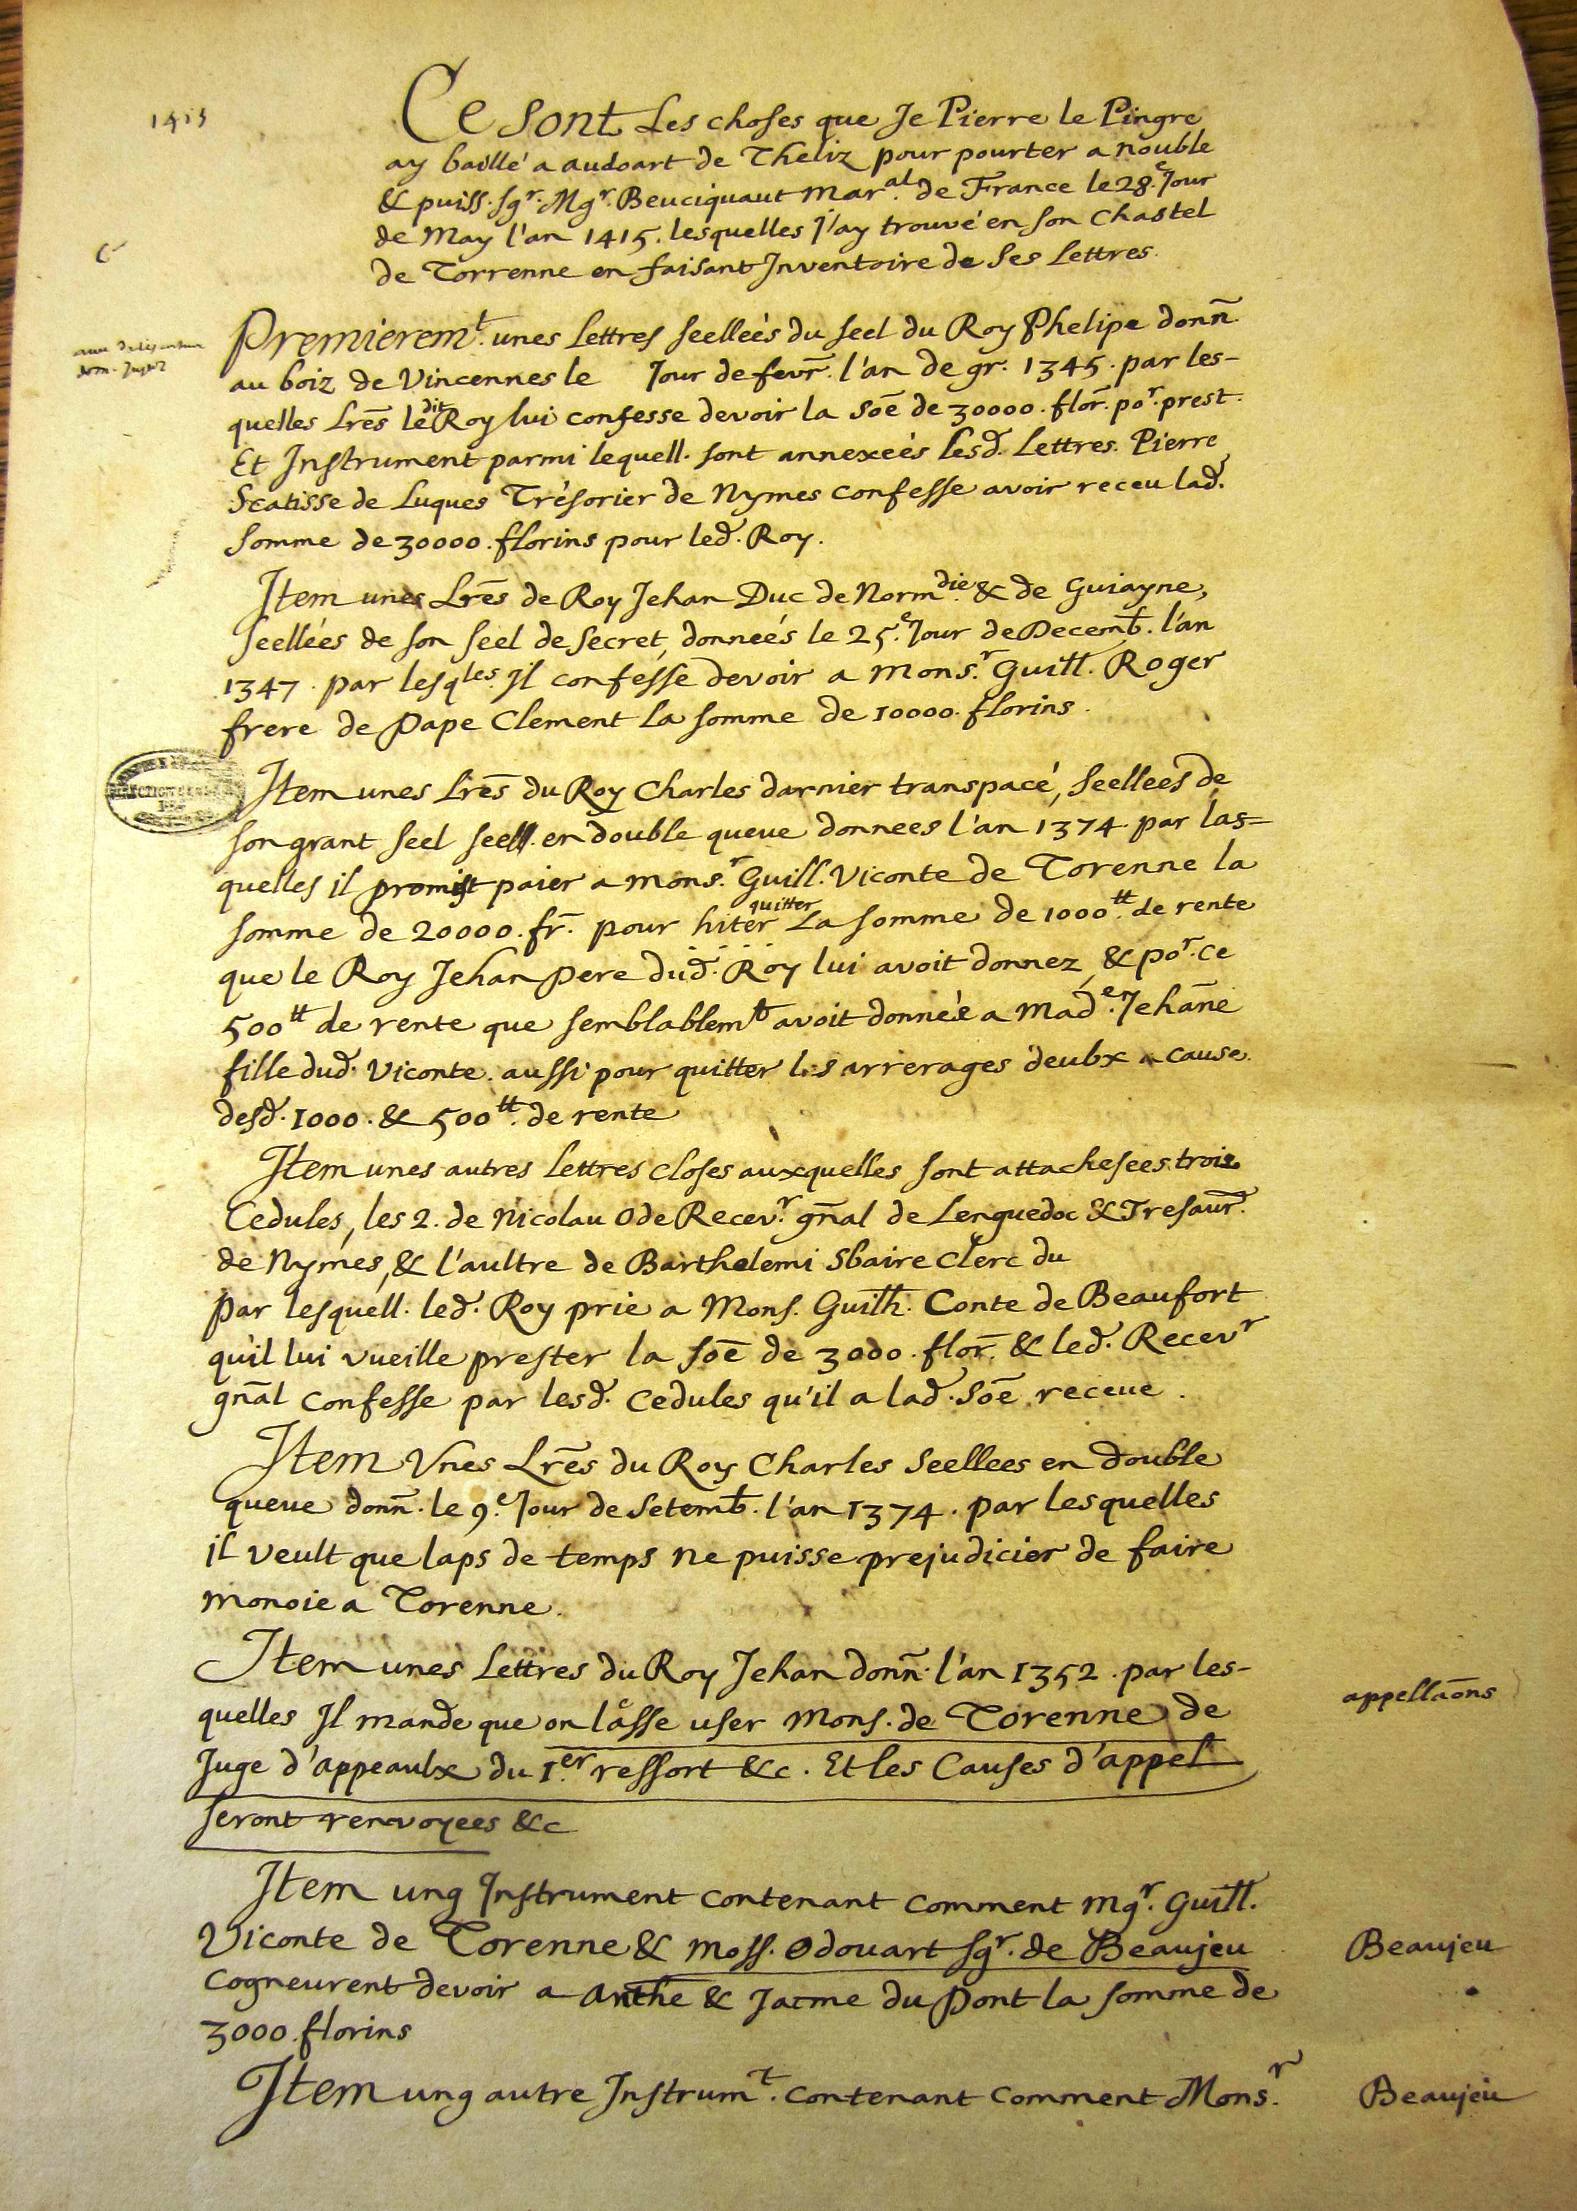 1415
Ce sont Les choses que Je Pierre le Pingre
ay baillé a audoart de Theliz pour pourter a nouble
& puiss. sgr. Mgr. Beuciquaut Maral. de France le 28.e Jour
de May l'an 1415. lesquelles j'ay trouvé en son Chastel
de Torrenne en faisant Inventoire de ses Lettres.
Premierem.t unes Lettres seelleés du seel du Roy Phelipe donñ
au boiz de Vincennes le Jour de fevr̃. l'an de gr. 1345. par les-
quelles Lrẽs ledit Roy lui confesse devoir la sõe de 30000. flor̃. por. prest.
Et Instrument parmi lequell. sont annexeés lesd. Lettres. Pierre
Scatisse de Luques Trésorier de Nymes confesse avoir receu lad.
somme de 30000. florins pour led. Roy.
Item unes Lrẽs de Roy Jehan Duc de Normdie. & de Guiayne,
seellées de son seel de secret, donneés le 25.e Jour de Decemb. l'an
1347. par lesqles. Il confesse devoir a Mons.r Guill. Roger
frere de Pape Clement La somme de 10000. florins.
Item unes Lrẽs du Roy Charles darnier transpacé, seelleés de
son grant seel seell. en double queue donnees l'an 1374. par las=
quelles il promist paier a Mons.r Guill. Viconte de Torenne la
somme de 20000. fr̃. pour hiter quitter La somme de 1000tt. de rente
que le Roy Jehan pere dud. Roy lui avoit donnez, & por. ce
500tt de rente que semblablemt avoit donneé a Mad.e Jehãne
fille dud. Viconte. aussi pour quitter les arrerages deubx a cause
desd. 1000. & 500tt. de rente
Item unes autres Lettres closes auxquelles sont attachesees trois
Cedules, les 2. de Nicolau Ode Recev.r gñal de Lenguedoc & Tresaur̃.
de Nymes, & l'aultre de Barthelemi Sbaire Clerc du
par lesquell. led. Roy prie a Mons. Guilh. Conte de Beaufort
qu'il lui vueille prester la sõe de 3000. flor̃. & led. Recevr
gñal confesse par lesd. Cedules qu'il a lad. Sõe receue.
Item Vnes Lrẽs du Roy Charles Seellees en double
queue donñ. le 9.e Jour de Setemb. l'an 1374. par lesquelles
il veult que laps de temps ne puisse prejudicier de faire
monoie a Torenne.
Item unes Lettres du Roy Jehan donñ. l'an 1352. par les-
quelles Il mande que on lasse user Mons. de Torenne de
appellaõns
Juge d'appeaulx du 1.er ressort &c. Et les Causes d'appel
seront renvoyees &c
Item ung Instrument contenant comment Mgr. Guill.
Viconte de Torenne & Moss. Odouart sgr. de Beaujeu
Beaujeu
cogneurent devoir a Anthe & Jacme du Pont la somme de
3000. florins
Item ung autre Instrum.t contenant comment Mons.r
Beaujeu